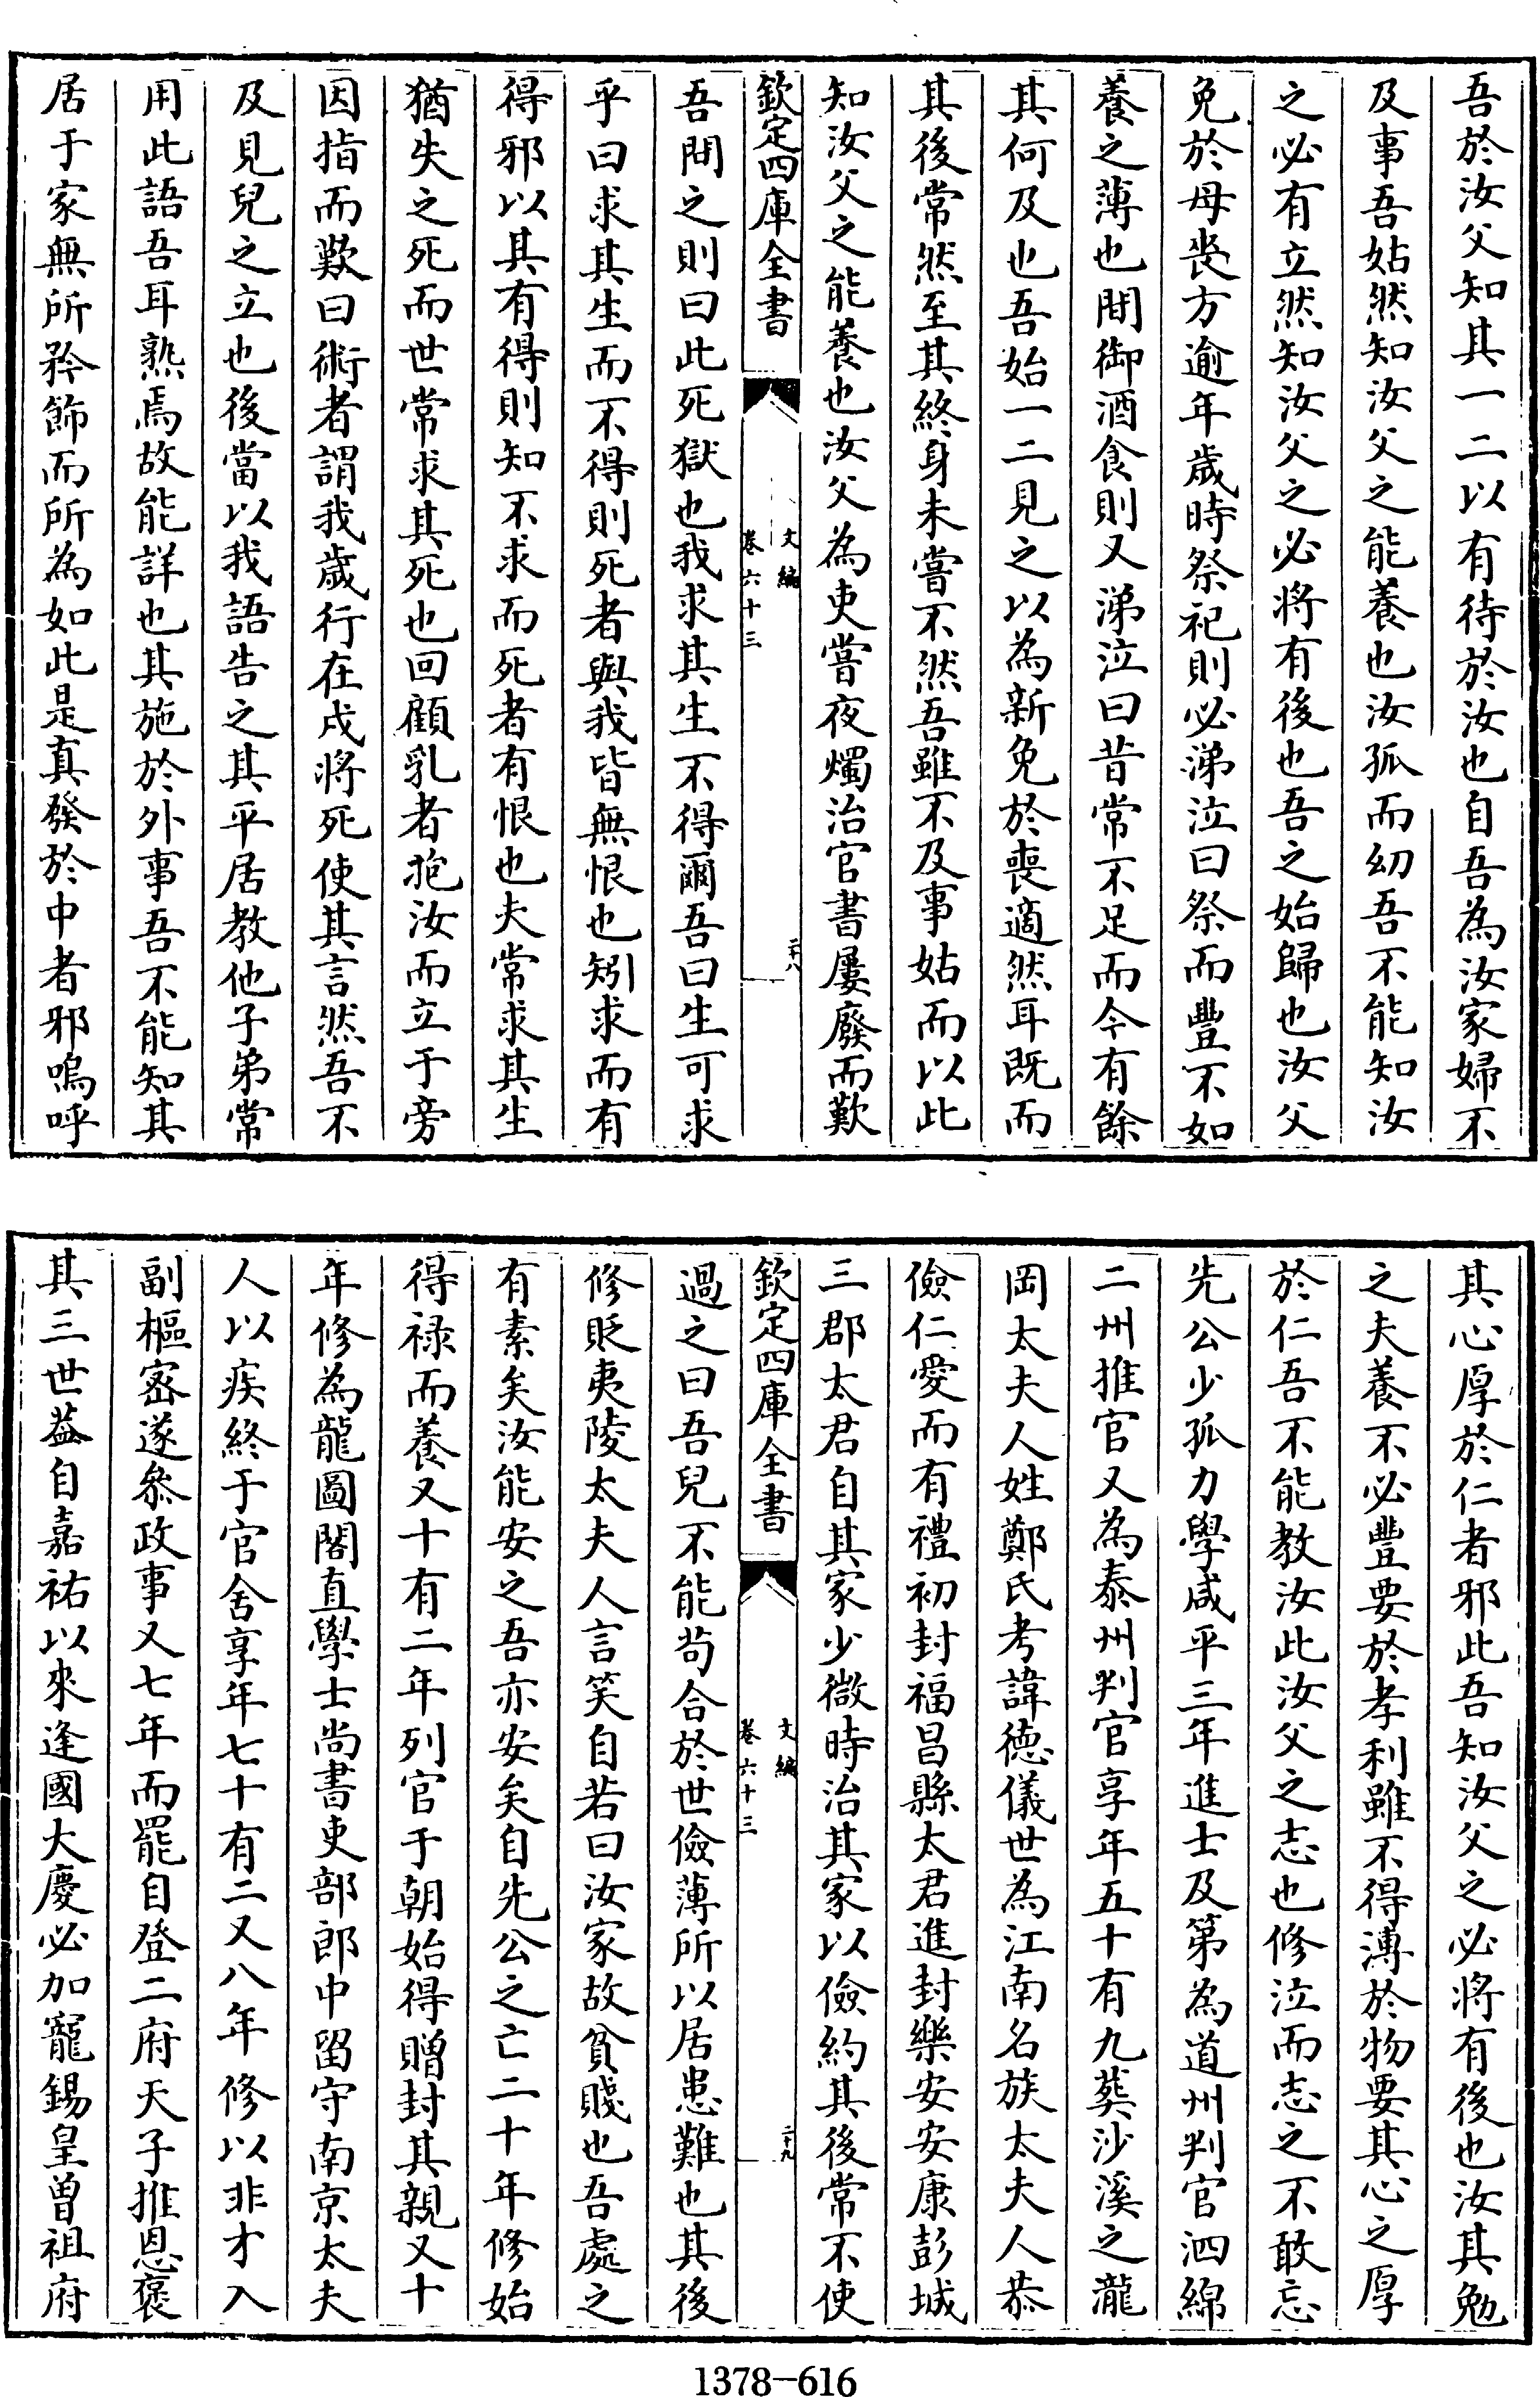 吾於汝父知其一二以有待於汝也自吾為汝家婦不
及事吾姑然知汝父之能養也汝孤而幼吾不能知汝
之必有立然知汝父之必將有後也吾之始歸也汝父
免於母喪方逾年歲時祭祀則必涕泣曰祭而豐不如
養之薄也間御酒食則又涕泣曰昔常不足而今有餘
其何及也吾始一二見之以為新免於喪適然耳既而
其後常然至其終身未嘗不然吾雖不及事姑而以此
知汝父之能養也汝父為吏嘗夜燭治官書屢廢而歎
欽定四庫全書
文編
卷六十三
二十八
吾問之則曰此死獄也我求其生不得爾吾曰生可求
乎曰求其生而不得則死者與我皆無恨也矧求而有
得邪以其有得則知不求而死者有恨也夫常求其生
猶失之死而世常求其死也回顧乳者抱汝而立于旁
因指而歎曰術者謂我歲行在戌將死使其言然吾不
及見兒之立也後當以我語告之其平居教他子弟常
用此語吾耳熟焉故能詳也其施於外事吾不能知其
居于家無所矜飾而所為如此是真發於中者邪嗚呼
其心厚於仁者邪此吾知汝父之必將有後也汝其勉
之夫養不必豐要於孝利雖不得溥於物要其心之厚
於仁吾不能教汝此汝父之志也修泣而志之不敢忘
先公少孤力學咸平三年進士及第為道州判官泗綿
二州推官又為泰州判官享年五十有九葬沙溪之瀧
岡太夫人姓鄭氏考諱德儀世為江南名族太夫人恭
儉仁愛而有禮初封福昌縣太君進封樂安安康彭城
三郡太君自其家少微時治其家以儉約其後常不使
欽定四庫全書
文編
卷六十三
二十九
過之曰吾兒不能茍合於世儉薄所以居患難也其後
修貶夷陵太夫人言笑自若曰汝家故貧賤也吾處之
有素矣汝能安之吾亦安矣自先公之亡二十年修始
得祿而養又十有二年列官于朝始得贈封其親又十
年修為龍圖閣直學士尚書吏部郎中留守南京太夫
人以疾終于官舍享年七十有二又八年修以非才入
副樞密遂叅政事又七年而罷自登二府天子推恩褒
其三世葢自嘉祐以來逢國大慶必加寵錫皇曾祖府
1378-616